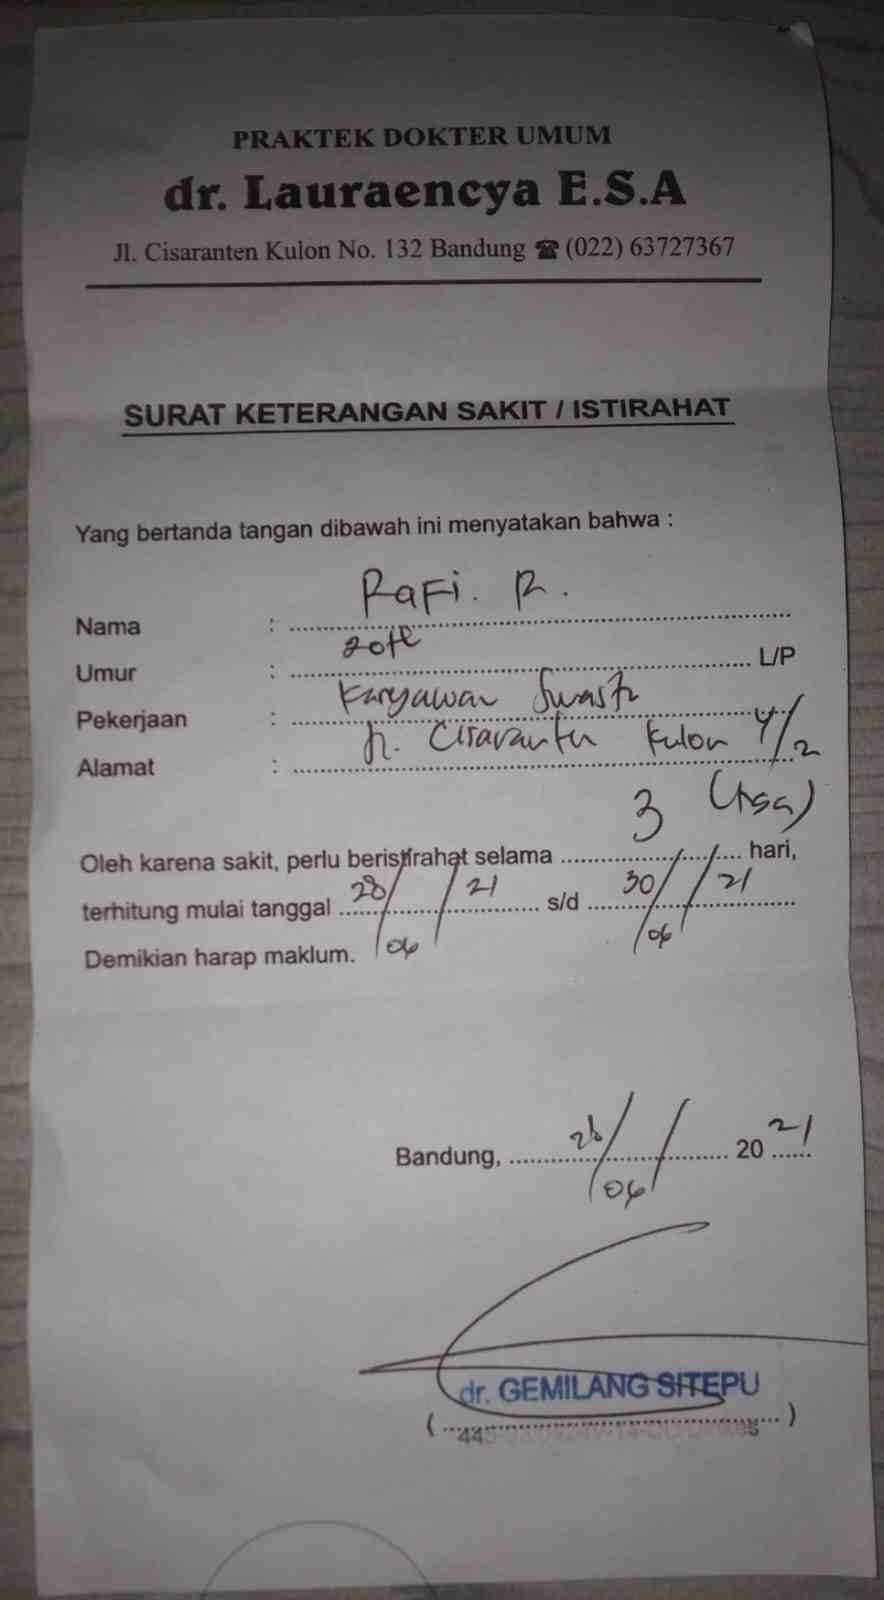 PRAKTEK DOKTER UMUM
dr. Lauraencya E.S.A
Jl. Cisaranten Kulon No. 132 Bandung ☎ (022) 63727367
SURAT KETERANGAN SAKIT / ISTIRAHAT
Yang bertanda tangan dibawah ini menyatakan bahwa :
Nama : Rafi. R.
Umur : 20th L/P
Pekerjaan : Karyawan Swasta
Alamat : Jl. Cisaranten Kulon 4/2
3 (tiga)
Oleh karena sakit, perlu beristirahat selama hari,
terhitung mulai tanggal 28/06/21 s/d 30/06/21
Demikian harap maklum.
Bandung, 28/06/ 2021
dr. GEMILANG SITEPU